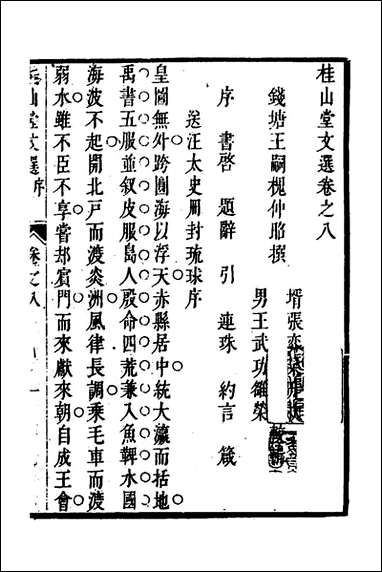 桂山堂文選卷之八
錢塘王嗣槐仲昭撰
壻張
男王武功維榮
序　書啓　題辭　引　連珠　約言　箴
送汪太史冊封琉球序
皇圖無外跨圜海以浮天赤縣居中統大瀛而括地
禹書五服並叙皮服島人殷命四荒兼入魚鞞水國
海波不起開北戶而渡炎洲風律長調乘毛車而渡
弱水雖不臣不享嘗却賓門而來獻來朝自成王會
桂山堂文選序
卷之八
一